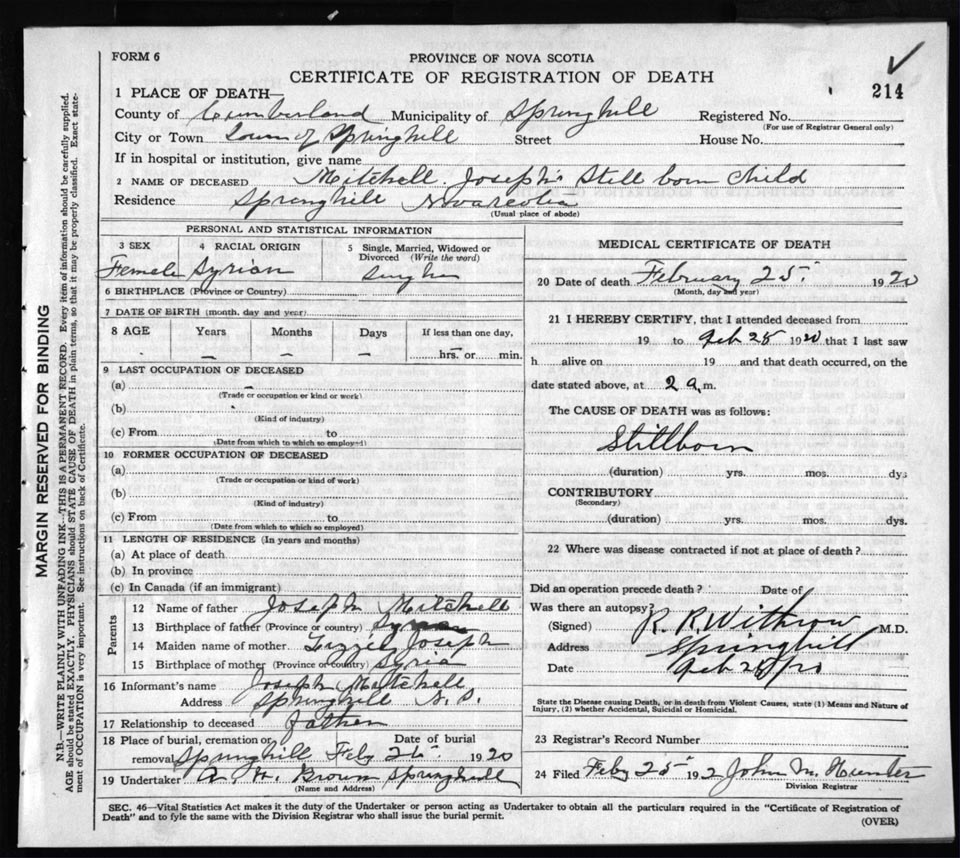 FORM 6
PROVINCE OF NOVA SCOTIA
CERTIFICATE OF REGISTRATION OF DEATH
214
1 PLACE OF DEATH—
County of Cumberland Municipality of Springhill Registered No.
(For use of Registrar General only)
City or Town Town of Springhill Street House No.
If in hospital or institution, give name
2 NAME OF DECEASED Mitchell Joseph's Still born Child
Residence Springhill Novascotia
(Usual place of abode)
PERSONAL AND STATISTICAL INFORMATION
3 SEX 4 RACIAL ORIGIN 5 Single, Married, Widowed or Divorced (Write the word)
Femele Syrian
6 BIRTHPLACE (Province or Country)
7 DATE OF BIRTH (month, day and year)
8 AGE Years Months Days If less than one day,
— — — hrs. or min.
9 LAST OCCUPATION OF DECEASED
(a) —
(Trade or occupation or kind or work)
(b)
(Kind of industry)
(c) From to
(Date from which to which so employed)
10 FORMER OCCUPATION OF DECEASED
(a)
(Trade or occupation or kind of work)
(b)
(Kind of industry)
(c) From to
(Date from which to which so employed)
11 LENGTH OF RESIDENCE (In years and months)
(a) At place of death
(b) In province
(c) In Canada (if an immigrant)
Parents
12 Name of father Joseph Mitchell
13 Birthplace of father (Province or country)
14 Maiden name of mother Lizzie Joseph
15 Birthplace of mother (Province or country) Syria
16 Informant's name Joseph Mitchell
Address Springhill N.S.
17 Relationship to deceased father
18 Place of burial, cremation or Date of burial
removal Springhill Feby 26 1920
19 Undertaker Brown Springhill
(Name and Address)
MEDICAL CERTIFICATE OF DEATH
20 Date of death February 25 1920
(Month, day and year)
21 I HEREBY CERTIFY, that I attended deceased from
19 to Feb 25 1920 that I last saw
h alive on 19 and that death occurred, on the
date stated above, at 2 a.m.
The CAUSE OF DEATH was as follows:
Stillborn
(duration) yrs. mos. dys
CONTRIBUTORY
(Secondary)
(duration) yrs. mos. dys.
22 Where was disease contracted if not at place of death?
Did an operation precede death? Date of
Was there an autopsy?
(Signed) R. R. Withrow M.D.
Address Springhill
Date Feb 28/20
State the Disease causing Death, or in death from Violent Causes, state (1) Means and Nature of
Injury, (2) whether Accidental, Suicidal or Homicidal.
23 Registrar's Record Number
24 Filed Feby 25 192 John M Hunter
Division Registrar
SEC. 46—Vital Statistics Act makes it the duty of the Undertaker or person acting as Undertaker to obtain all the particulars required in the "Certificate of Registration of
Death" and to fyle the same with the Division Registrar who shall issue the burial permit.
(OVER)
MARGIN RESERVED FOR BINDING
N.B.—WRITE PLAINLY WITH UNFADING INK—THIS IS A PERMANENT RECORD. Every item of information should be carefully supplied.
AGE should be stated EXACTLY. PHYSICIANS should STATE CAUSE OF DEATH in plain terms, so that it may be properly classified. Exact state-
ment of OCCUPATION is very important. See instructions on back of Certificate.